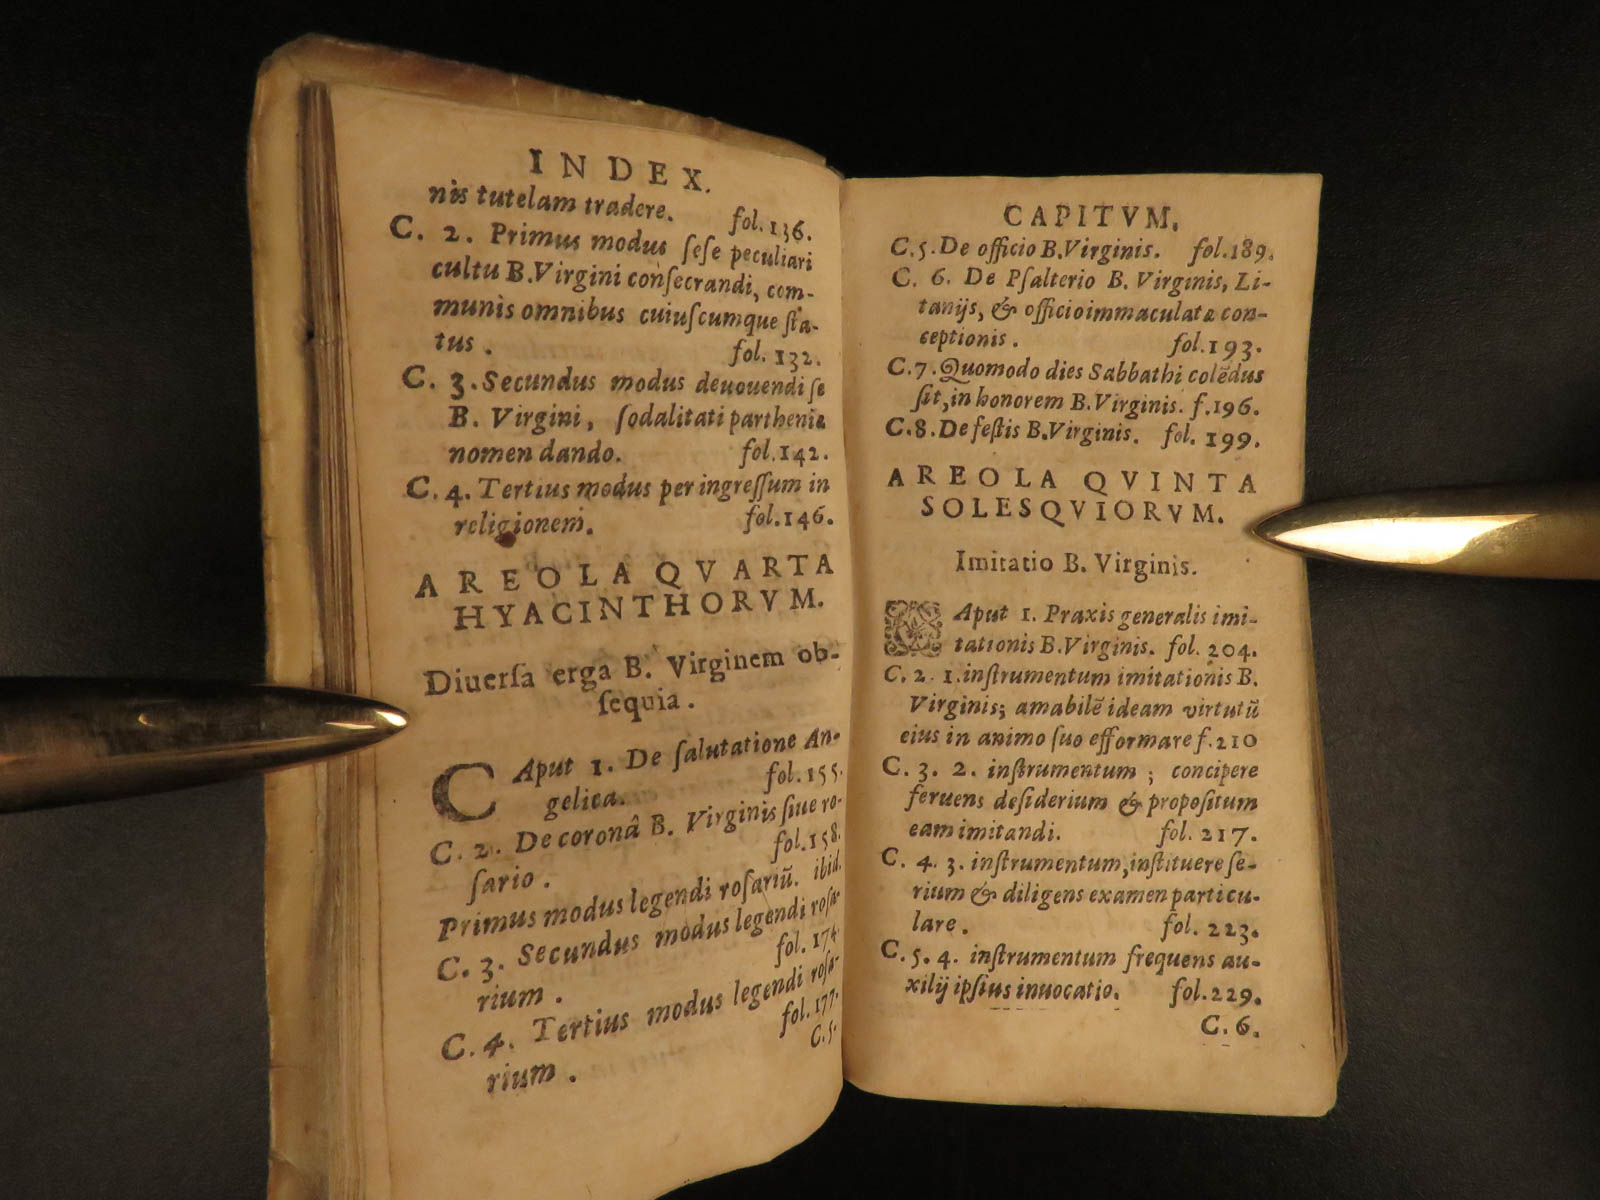 INDEX.
nis tutelam tradere. fol.136.
C. 2. Primus modus ſeſe peculiari
cultu B.Virgini conſecrandi, com-
munis omnibus cuiuſcumque ſta-
tus. fol. 132.
C. 3. Secundus modus deuouendi ſe
B. Virgini, ſodalitati partheniæ
nomen dando. fol.142.
C. 4. Tertius modus per ingreſſum in
religionem. fol.146.
AREOLA QVARTA
HYACINTHORVM.
Diuerſa erga B. Virginem ob-
ſequia.
CAput 1. De ſalutatione An-
gelica. fol.155.
C. 2. De coronâ B. Virginis ſiue ro-
ſario. fol.158.
Primus modus legendi roſariū. ibid.
C. 3. Secundus modus legendi roſa-
rium. fol. 174.
C. 4. Tertius modus legendi roſa-
rium. fol.177.
C.5.
CAPITVM.
C.5. De officio B.Virginis. fol.189.
C. 6. De Pſalterio B. Virginis, Li-
tanijs, & officio immaculatæ con-
ceptionis. fol.193.
C.7. Quomodo dies Sabbathi colēdus
ſit, in honorem B.Virginis. f.196.
C.8. De feſtis B.Virginis. fol. 199.
AREOLA QVINTA
SOLESQVIORVM.
Imitatio B. Virginis.
CAput 1. Praxis generalis imi-
tationis B.Virginis. fol. 204.
C. 2. 1. inſtrumentum imitationis B.
Virginis; amabilē ideam virtutū
eius in animo ſuo efformare f.210
C. 3. 2. inſtrumentum; concipere
feruens deſiderium & propoſitum
eam imitandi. fol. 217.
C. 4. 3. inſtrumentum, inſtituere ſe-
rium & diligens examen particu-
lare. fol. 223.
C. 5. 4. inſtrumentum frequens au-
xilij ipſius inuocatio. fol.229.
C. 6.